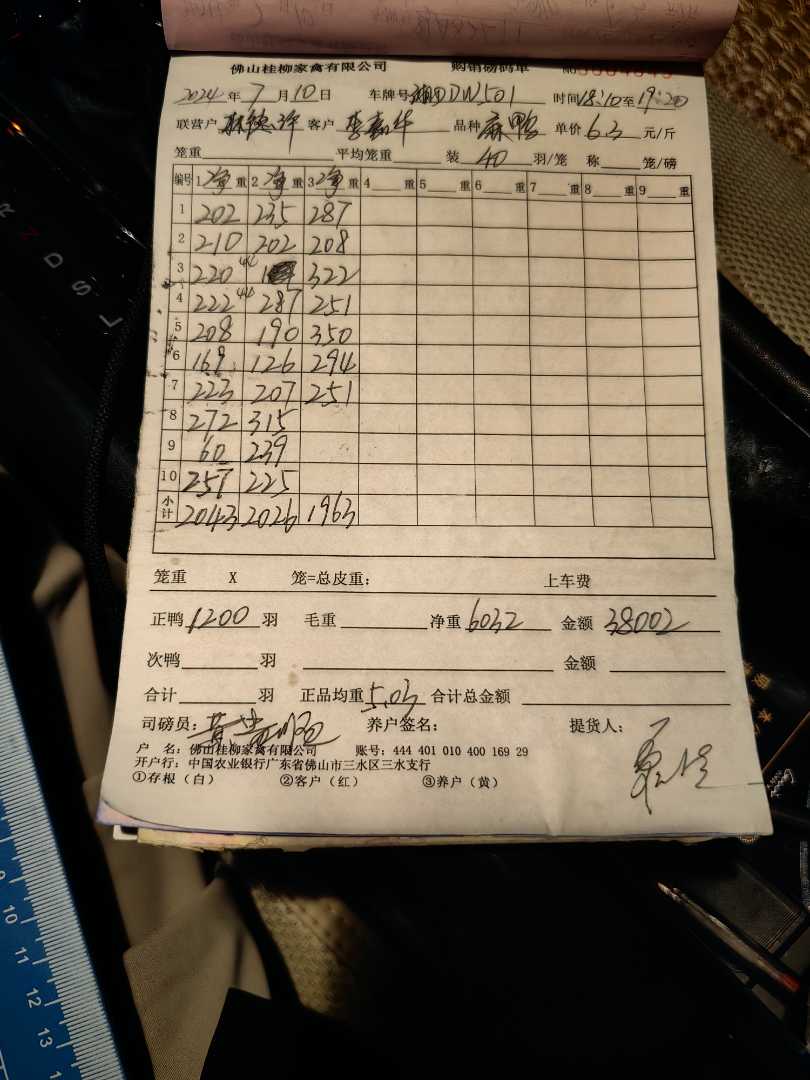 佛山桂柳家禽有限公司 购销磅码单 NO
2024年7月10日 车牌号 DW501 时间18:10至19:20
联营户 客户 李嘉华 品种 麻鸭 单价 6.3 元/斤
笼重 平均笼重 装 40 羽/笼 称 笼/磅
编号 1 净 重 2 净 重 3 净 重 4 重 5 重 6 重 7 重 8 重 9 重
1 202 235 287
2 210 202 208
3 220 322
4 222 287 251
5 208 190 350
6 169 126 294
7 223 207 251
8 272 315
9 60 239
10 257 225
小计 2043 2026 1963
笼重 X 笼=总皮重: 上车费
正鸭 1200 羽 毛重 净重 6032 金额 38002
次鸭 羽 金额
合计 羽 正品均重 5.03 合计总金额
司磅员: 养户签名: 提货人:
户 名: 佛山桂柳家禽有限公司 账号: 444 401 010 400 169 29
开户行: 中国农业银行广东省佛山市三水区三水支行
①存根(白) ②客户(红) ③养户(黄)
R
N
D
S
L
9
10
11
12
13